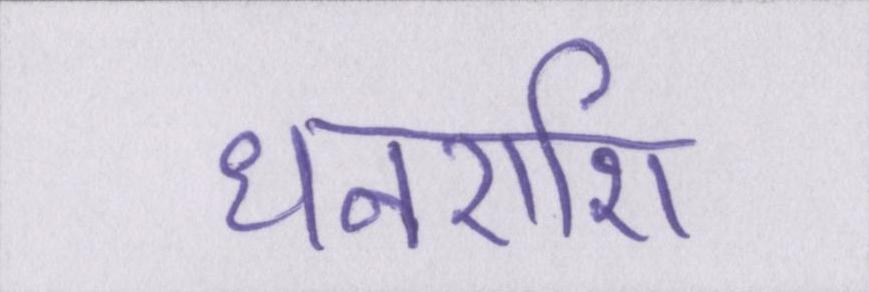 धनराशि